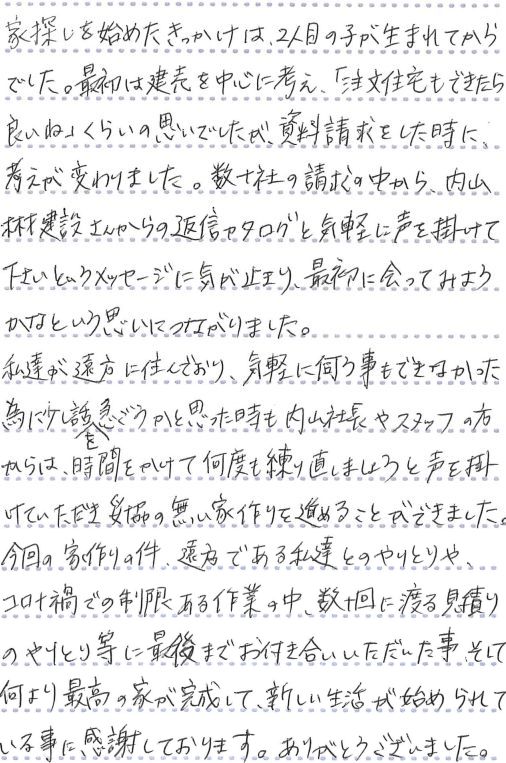 家探しを始めたきっかけは、2人目の子が生まれてから
でした。最初は建売を中心に考え、「注文住宅もできたら
良いね」くらいの思いでしたが、資料請求をした時に、
考えが変わりました。数十社の請求の中から、内山
材建設さんからの返信カタログと気軽に声を掛けて
下さいというメッセージに気が止まり、最初に会ってみよう
かなという思いにつながりました。
私達が遠方に住んでおり、気軽に伺う事もできなかった
為に少し話を急ごうかと思った時も内山社長やスタッフの方
からは、時間をかけて何度も練り直しましょうと声を掛
けていただき妥協の無い家作りを進めることができました。
今回の家作りの件、遠方である私達とのやりとりや、
コロナ禍での制限ある作業の中、数十回に渡る見積り
のやりとり等に最後までお付き合いいただいた事、そして
何より最高の家が完成して、新しい生活が始められて
いる事に感謝しております。ありがとうございました。